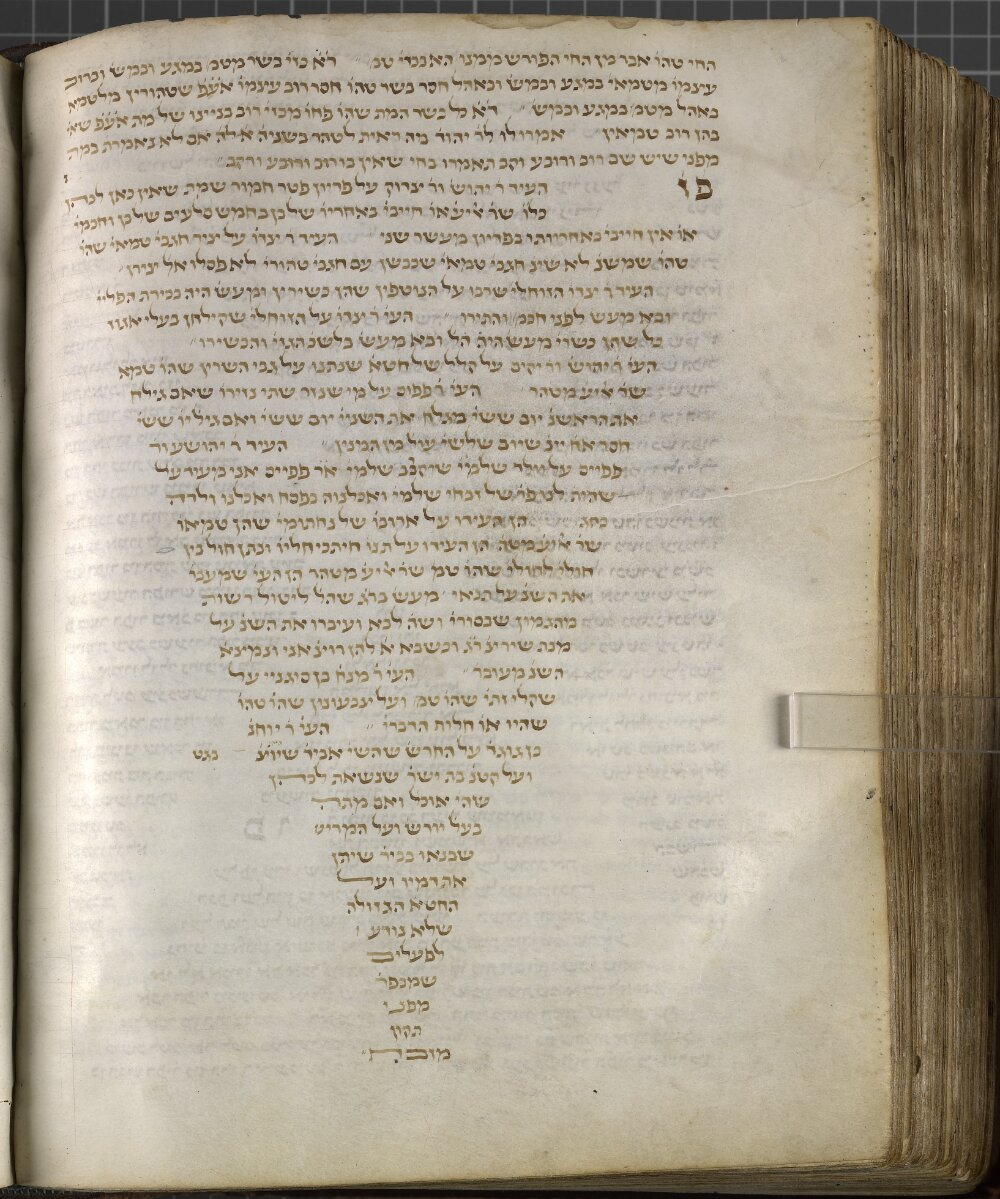 החי טהו׳ אבר מן החי הפורש ממנו האנכדי טמ׳ ד׳א כזי׳ בשר מטמ׳ במגע ובמש׳ וברוב
עצמו׳ מטמאי׳ במגע ובמש׳ ובאהל חסר בשר טהו׳ חסר רוב עצמו׳ אע״פ שטהורין מלטמא
באהל מטמ׳ במגע ובמש׳ ד׳א כל בשר המת שהו׳ פחו׳ מכזי׳ רוב בניינו של מה אע״פ שאי׳
בהן רוב טמאין אמרו לו לר׳ יהוד׳ מה ראית לטהר בשניה אלה אם לא נאמרת במה
מפני שיש שם רוב ורובע וקב תאמרו בחי שאין בו רוב ורובע ורקב
פ ז העיד ר׳ יהוש׳ ור׳ צדוק על פדיון פטר חמור שמת שאין כאן לכהן
כלו׳ שר׳ אליע׳ או׳ חייבי׳ באחריו׳ של כן בחמש סלעים של בן וחכמי׳
או׳ אין חייבי׳ באחריותו כפדיון מעשר שני העיד ר׳ צדו׳ על ציר חגבי׳ טמאי׳ שהו׳
טהו׳ שמשנ׳ לא שינ׳ חגבי׳ טמאי׳ שכבשן עם חגבי׳ טהורי׳ לא פסלו אל׳ צירן
העיד ר׳ צדו׳ הזוחלי׳ שרבו על הנוטפין שהן כשירין ומעש׳ היה בבירת הפלי׳
ובא מעש׳ לפני חכמ׳ והתירו׳ העי׳ ר׳ צדו׳ על הזוחלי׳ שקילחן בעלי אגוז
כל שהן כשרי׳ מעש׳ היה הל׳ ובא מעש׳ בלשכ׳ הגזי׳ והכשירו׳
העי׳ ר׳ יהוש׳ ור׳ יקים על קלל של חטא׳ שנתנו׳ על גבי השרץ שהו׳ טמא
שר׳ אליע׳ מטהר העי׳ ר׳ פפיס על מי שנזר שתי נזירו׳ שאם גילח
את הראשנ׳ יום ששי׳ מגלח את השניי׳ יום ששי׳ ואם גיל׳ יו׳ ששי׳
חסר אח׳ יצ׳ שיום שלשי׳ עול׳ מן המנין העיד ר׳ יהושע ור׳
פפייס על ולד שלמי׳ שיקרב שלמי׳ או׳ פפייס אני מעיד על
שהית׳ לנו פר׳ של זבחי שלמי׳ ואכלנוה בפסח ואכלנו ולדה
בחג הן העידו על ארוכו׳ של נחתומי׳ שהן טמאו׳
שר׳ אליע׳ מטה׳ הן העידו על תנו׳ חיתכו חליו׳ ונתן חול בין
חוליה לחולי׳ שהו׳ טמ׳ שר׳ אליע׳ מטהר הן העי׳ שמעבר׳
את השנ׳ על תנאי׳ מעש׳ ברג׳ שהל׳ ליטול רשות
מהגמון שבסורי׳ ושה׳ לבא ועיברו את השנ׳ על
מנת שירצ׳ ר׳ג׳ וכשבא א׳ להן רוצ׳ אני ונמצא׳
השנ׳ מעובר׳ העי׳ ר׳ מנח׳ בן סוגניי׳ על
שהליזתי׳ שהו׳ טמ׳ ועל צבעונין שהו׳ טהו׳
שהיו או׳ חלות הדברי׳ העי׳ ר׳ יוחנ׳
בן גוגד׳ על החרש׳ שהשי׳ אביה׳ שיוצא׳ בגט
ועל קטנ׳ בת ישר׳ שנשאת לכהן
שהי׳ אוכל׳ ואם מתה
בעל׳ יורש׳ ועל המריש
שבנאו בביר׳ שיתן
את דמיו ועל
החטא׳ הגזולה
שלא נודע׳
לפעלים
שמכפר׳
מפני
תקון
מזבח